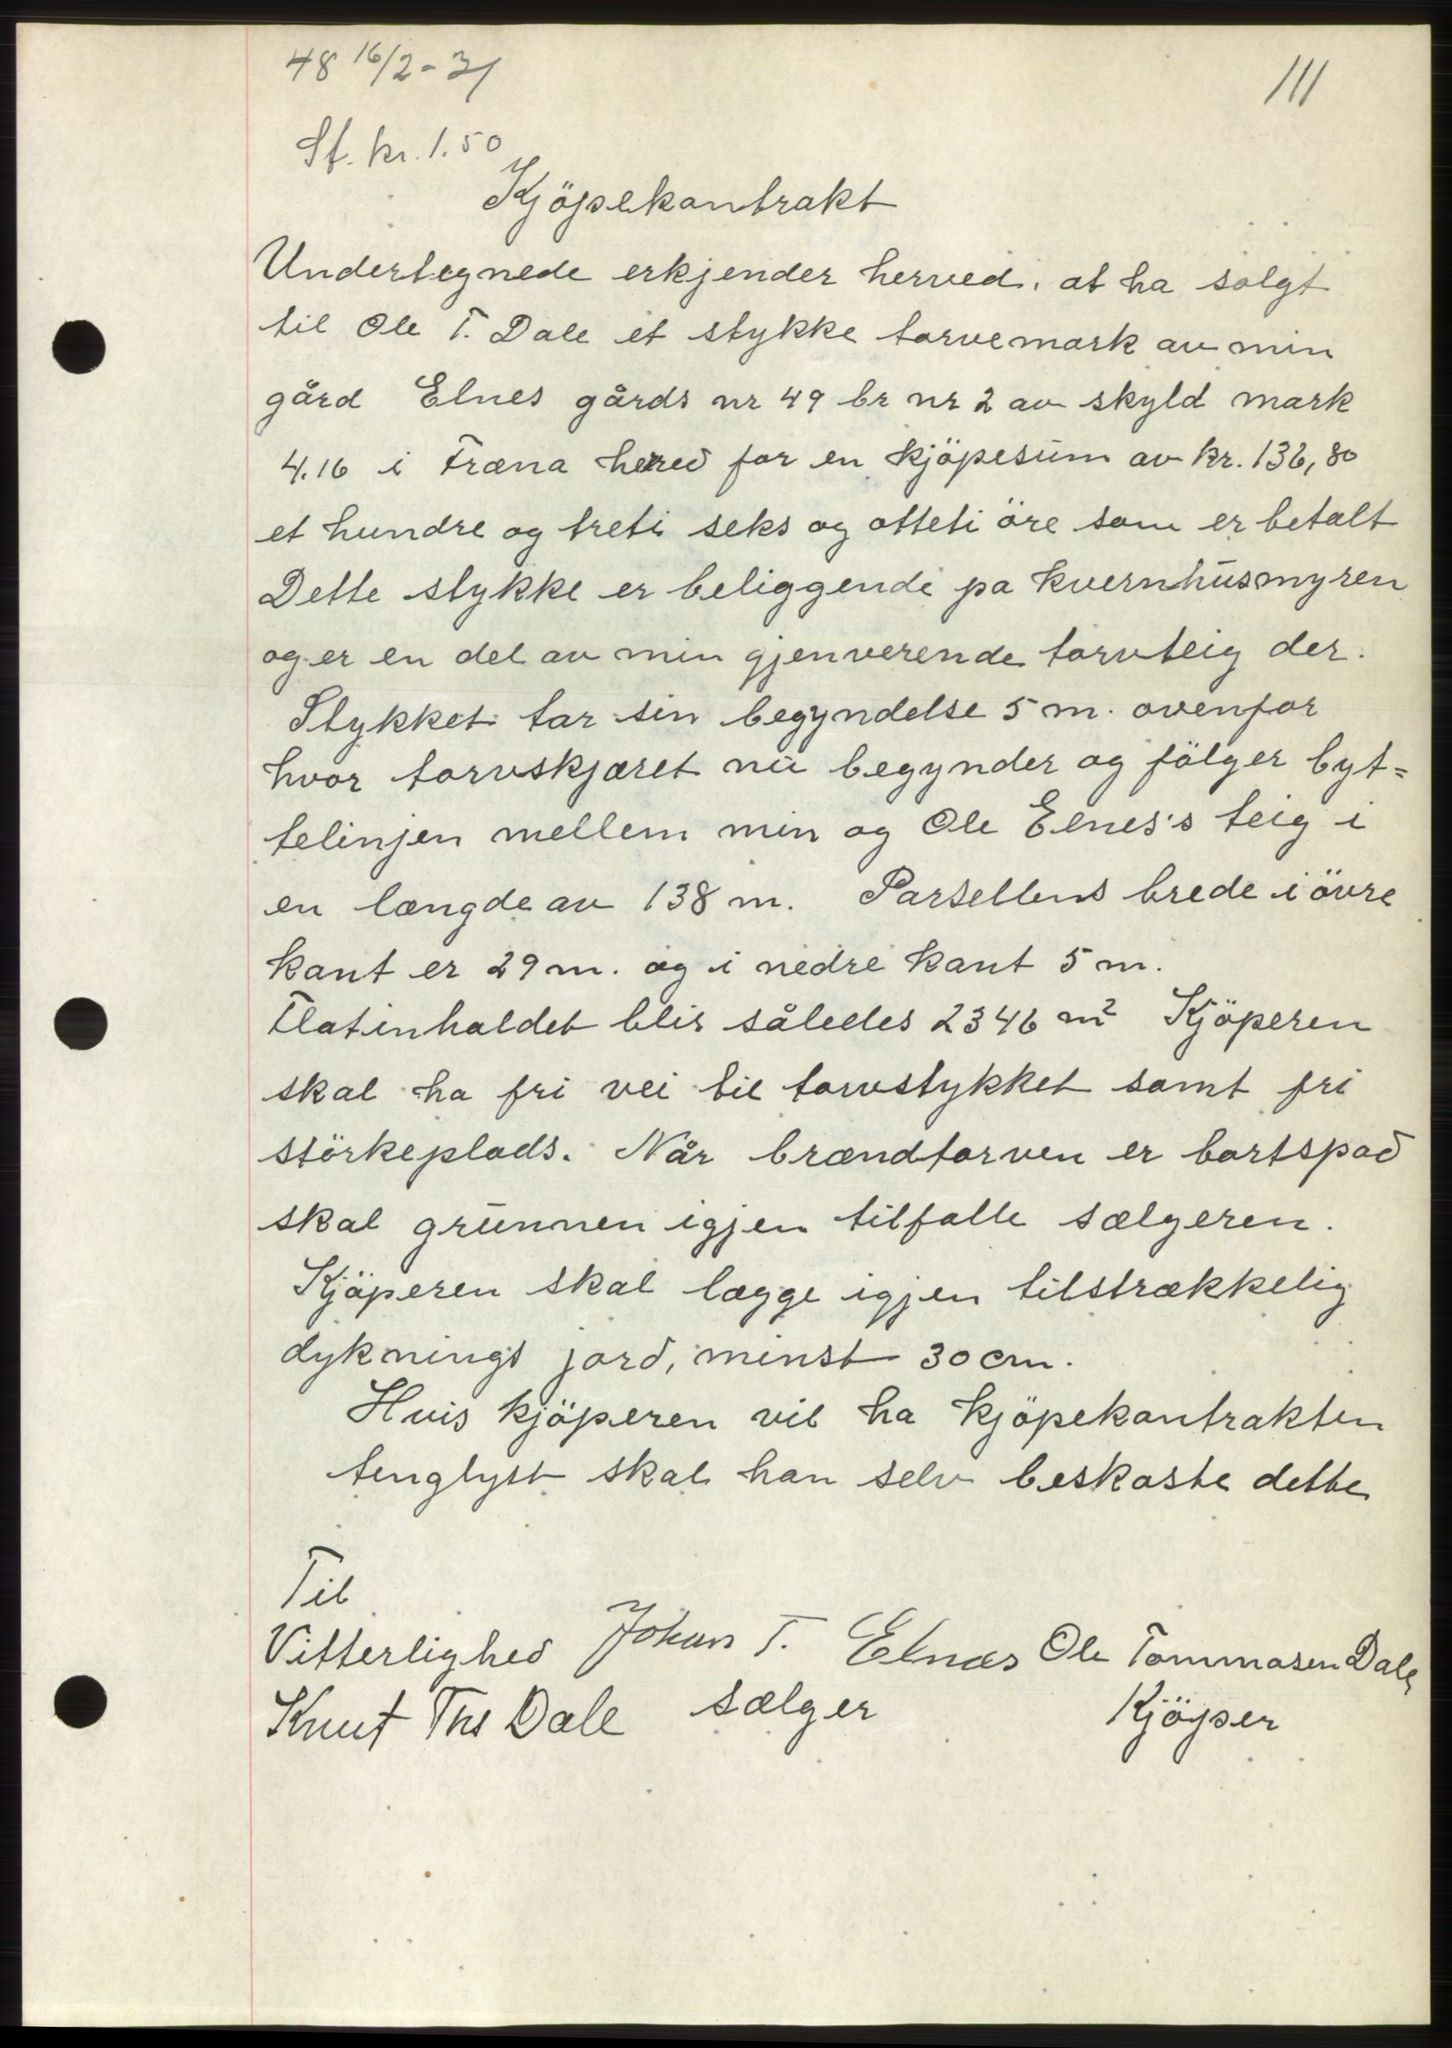 48 16/2-31
111
St. kr. 1.50
Kjöpekontrakt
Undertegnede erkjender herved, at ha solgt
til Ole T. Dale et stykke torvemark av min
gård Elnes gårds nr 49 br nr 2 av skyld mark
4.16 i Fræna hered for en kjöpesum av kr. 136,80
et hundre og treti seks og otteti öre som er betalt
Dette stykke er beliggende pa kvernhusmyren
og er en del av min gjenverende torvteig der.
Stykket tar sin begyndelse 5 m. ovenfor
hvor torvskjæret nu begynder og fölger byt=
telinjen mellem min og Ole Elnes's teig i
en længde av 138 m. Parsellens brede i övre
kant er 29 m. og i nedre kant 5 m.
Flatinholdet blir således 2346 m² Kjöperen
skal ha fri vei til torvstykket samt fri
störkeplads. Når brændtorven er bortspad
skal grunnen igjen tilfalle sælgeren.
Kjöperen skal lægge igjen tilstrækkelig
dyknings jord, minst 30 cm.
Hvis kjöperen vil ha kjöpekontrakten
tinglyst skal han selv beskoste dette
Til
Vitterlighed Johan T. Elnæs Ole Tommasen Dale
Knut Ths Dale sælger Kjöper